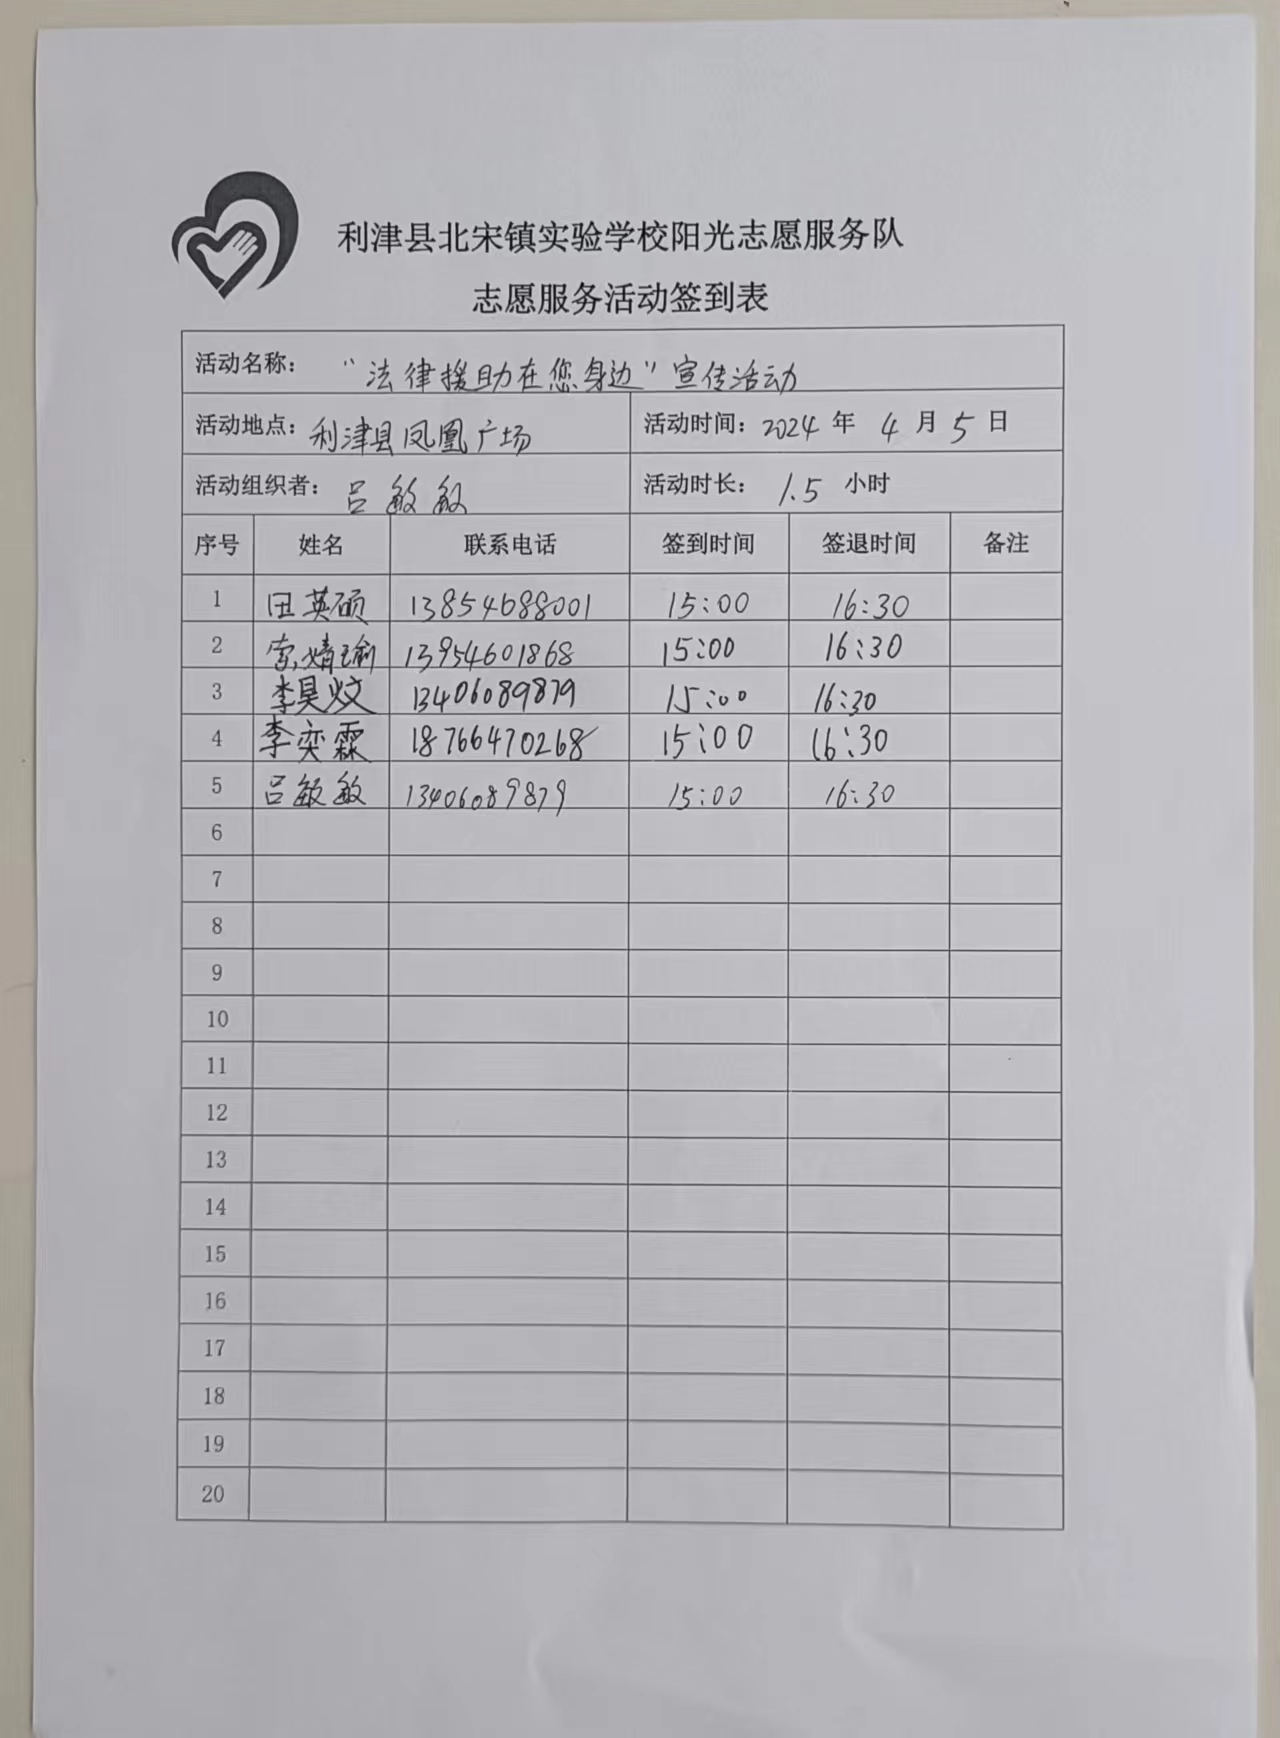 利津县北宋镇实验学校阳光志愿服务队
志愿服务活动签到表
活动名称: “法律援助在您身边”宣传活动
活动地点: 利津县凤凰广场 活动时间: 2024 年 4 月 5 日
活动组织者: 吕敏敏 活动时长: 1.5 小时
序号 姓名 联系电话 签到时间 签退时间 备注
1 田英硕 13854688001 15:00 16:30
2 婧瑜 13954601868 15:00 16:30
3 李昊炆 13406089879 15:00 16:30
4 李奕霖 18766470268 15:00 16:30
5 吕敏敏 13406089879 15:00 16:30
6
7
8
9
10
11
12
13
14
15
16
17
18
19
20